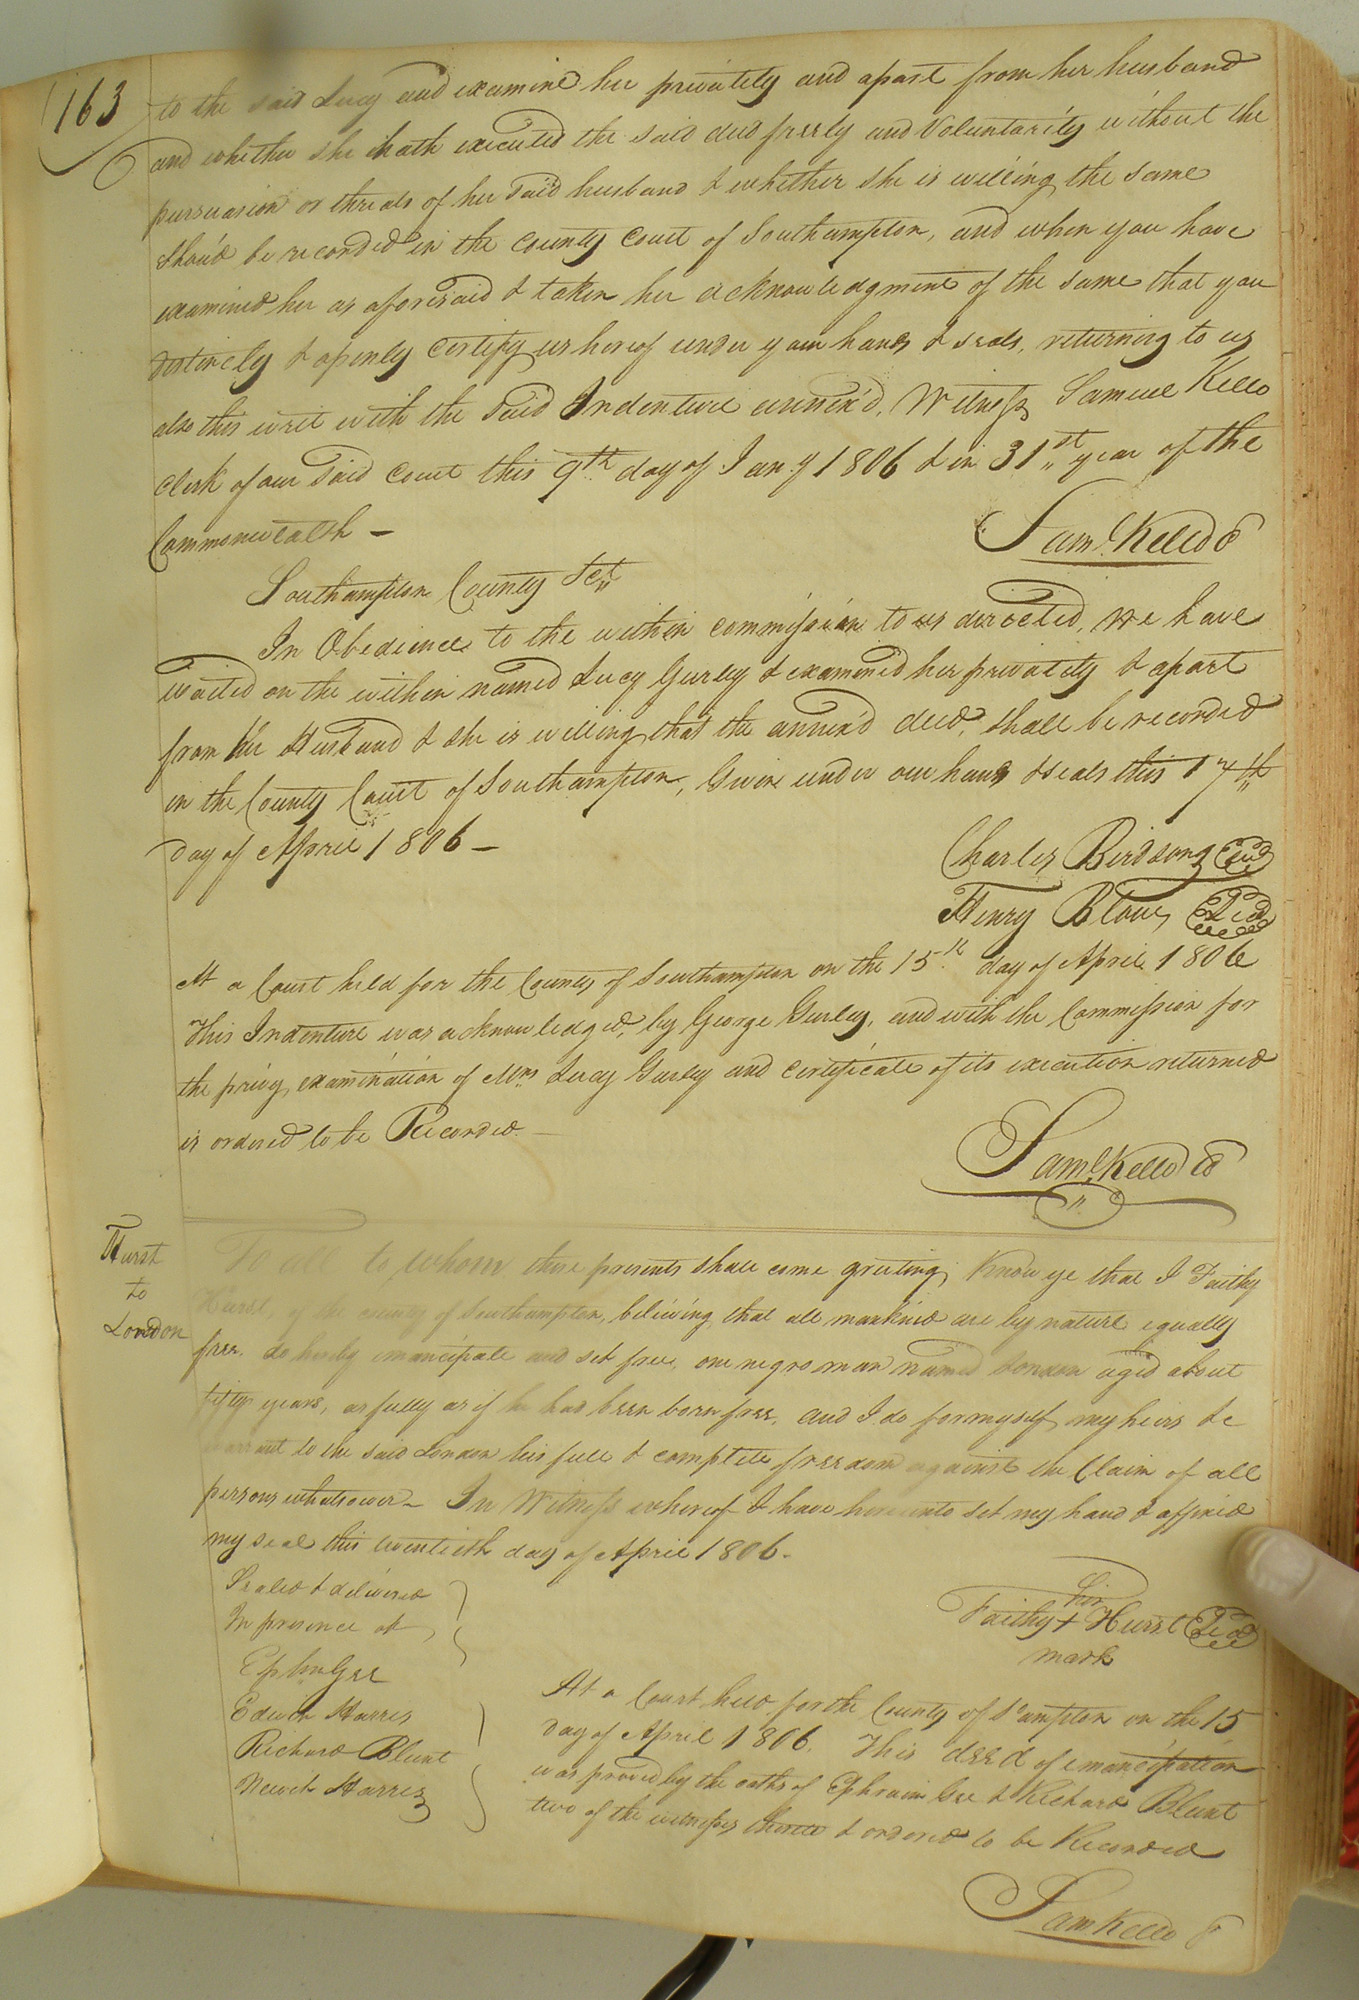 163
to the said Lucy and examine her privately and apart from her husband
and whether she hath executed the said deed freely and Voluntarily without the
persuasion or threats of her said husband & whether she is willing the same
shou'd be recorded in the county court of Southampton, and when you have
examined her as aforesaid & taken her acknowledgment of the same that you
distinctly & openly certify us hereof under your hands & seals, returning to us
also this writ with the said Indenture annex'd, Witness Samuel Kello
clerk of our said Court this 9th day of Jany 1806 & in 31st year of the
Commonwealth —
Sam. Kello
Southampton County Sct
In Obedience to the within commission to us directed, we have
waited on the within named Lucy Gurley & examined her privately & apart
from her Husband & she is willing that the annex'd deed, shall be recorded
in the County Court of Southampton, Given under our hands & seals this 17th
day of April 1806 —
Charles Birdsong Seal
Henry Blow Seal
At a Court held for the County of Southampton on the 15th day of April 1806
This Indenture was acknowledged, by George Gurley, and with the Commission for
the privy examination of Mrs Lucy Gurley and certificate of its execution returned
is ordered to be Recorded —
Saml Kello
Hurst
to
London
To all to whom these presents shall come greeting, Know ye that I Faithy
Hurst, of the county of Southampton, believing that all mankind are by nature equally
free. do hereby emancipate and set free, one negro man named London aged about
fifty years, as fully as if he had been born free, and I do for myself my heirs &c
warrant to the said London his full & complete freedom against the Claim of all
persons whatsoever — In Witness whereof I have hereunto set my hand & affixed
my seal this twentieth day of April 1806.
Sealed & delivered
In presence of
Ephm Gee
Edwin Harris
Richard Blunt
Newit Harris
her
Faithy + Hurst Seal
mark
At a Court held for the County of S'ampton on the 15
day of April 1806. This deed of emancipation
was proved by the oaths of Ephraim Gee & Richard Blunt
two of the witnesses thereto & ordered to be Recorded
Sam Kello